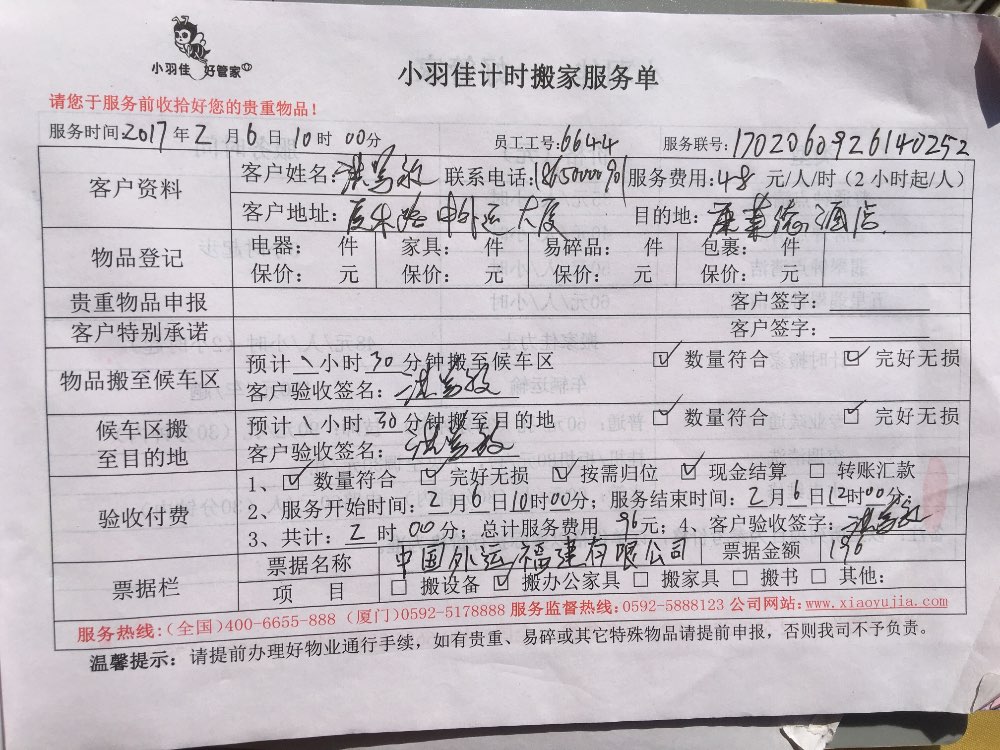 小羽佳 好管家
小羽佳计时搬家服务单
请您于服务前收拾好您的贵重物品！
服务时间:2017年2月6日10时00分 员工工号:6644 服务联号:1702060926140252
客户资料
客户姓名: 联系电话: 服务费用:48元/人/时（2小时起/人）
客户地址: 中外运大厦 目的地: 酒店
物品登记
电器： 件 家具： 件 易碎品： 件 包裹： 件
保价： 元 保价： 元 保价： 元 保价： 元
贵重物品申报 客户签字：
客户特别承诺 客户签字：
物品搬至候车区
预计1小时30分钟搬至候车区 ☑ 数量符合 ☑ 完好无损
客户验收签名：
候车区搬至目的地
预计1小时30分钟搬至目的地 ☑ 数量符合 ☑ 完好无损
客户验收签名：
验收付费
1、☑ 数量符合 ☑ 完好无损 ☑ 按需归位 ☑ 现金结算 □ 转账汇款
2、服务开始时间:2月6日10时00分；服务结束时间:2月6日12时00分；
3、共计:2时00分；总计服务费用 96元；4、客户验收签字:
票据栏
票据名称 中国外运福建有限公司 票据金额 196
项 目 □ 搬设备 ☑ 搬办公家具 □ 搬家具 □ 搬书 □ 其他:
服务热线:(全国)400-6655-888 (厦门)0592-5178888 服务监督热线:0592-5888123 公司网站:www.xiaoyujia.com
温馨提示：请提前办理好物业通行手续，如有贵重、易碎或其它特殊物品请提前申报，否则我司不予负责。